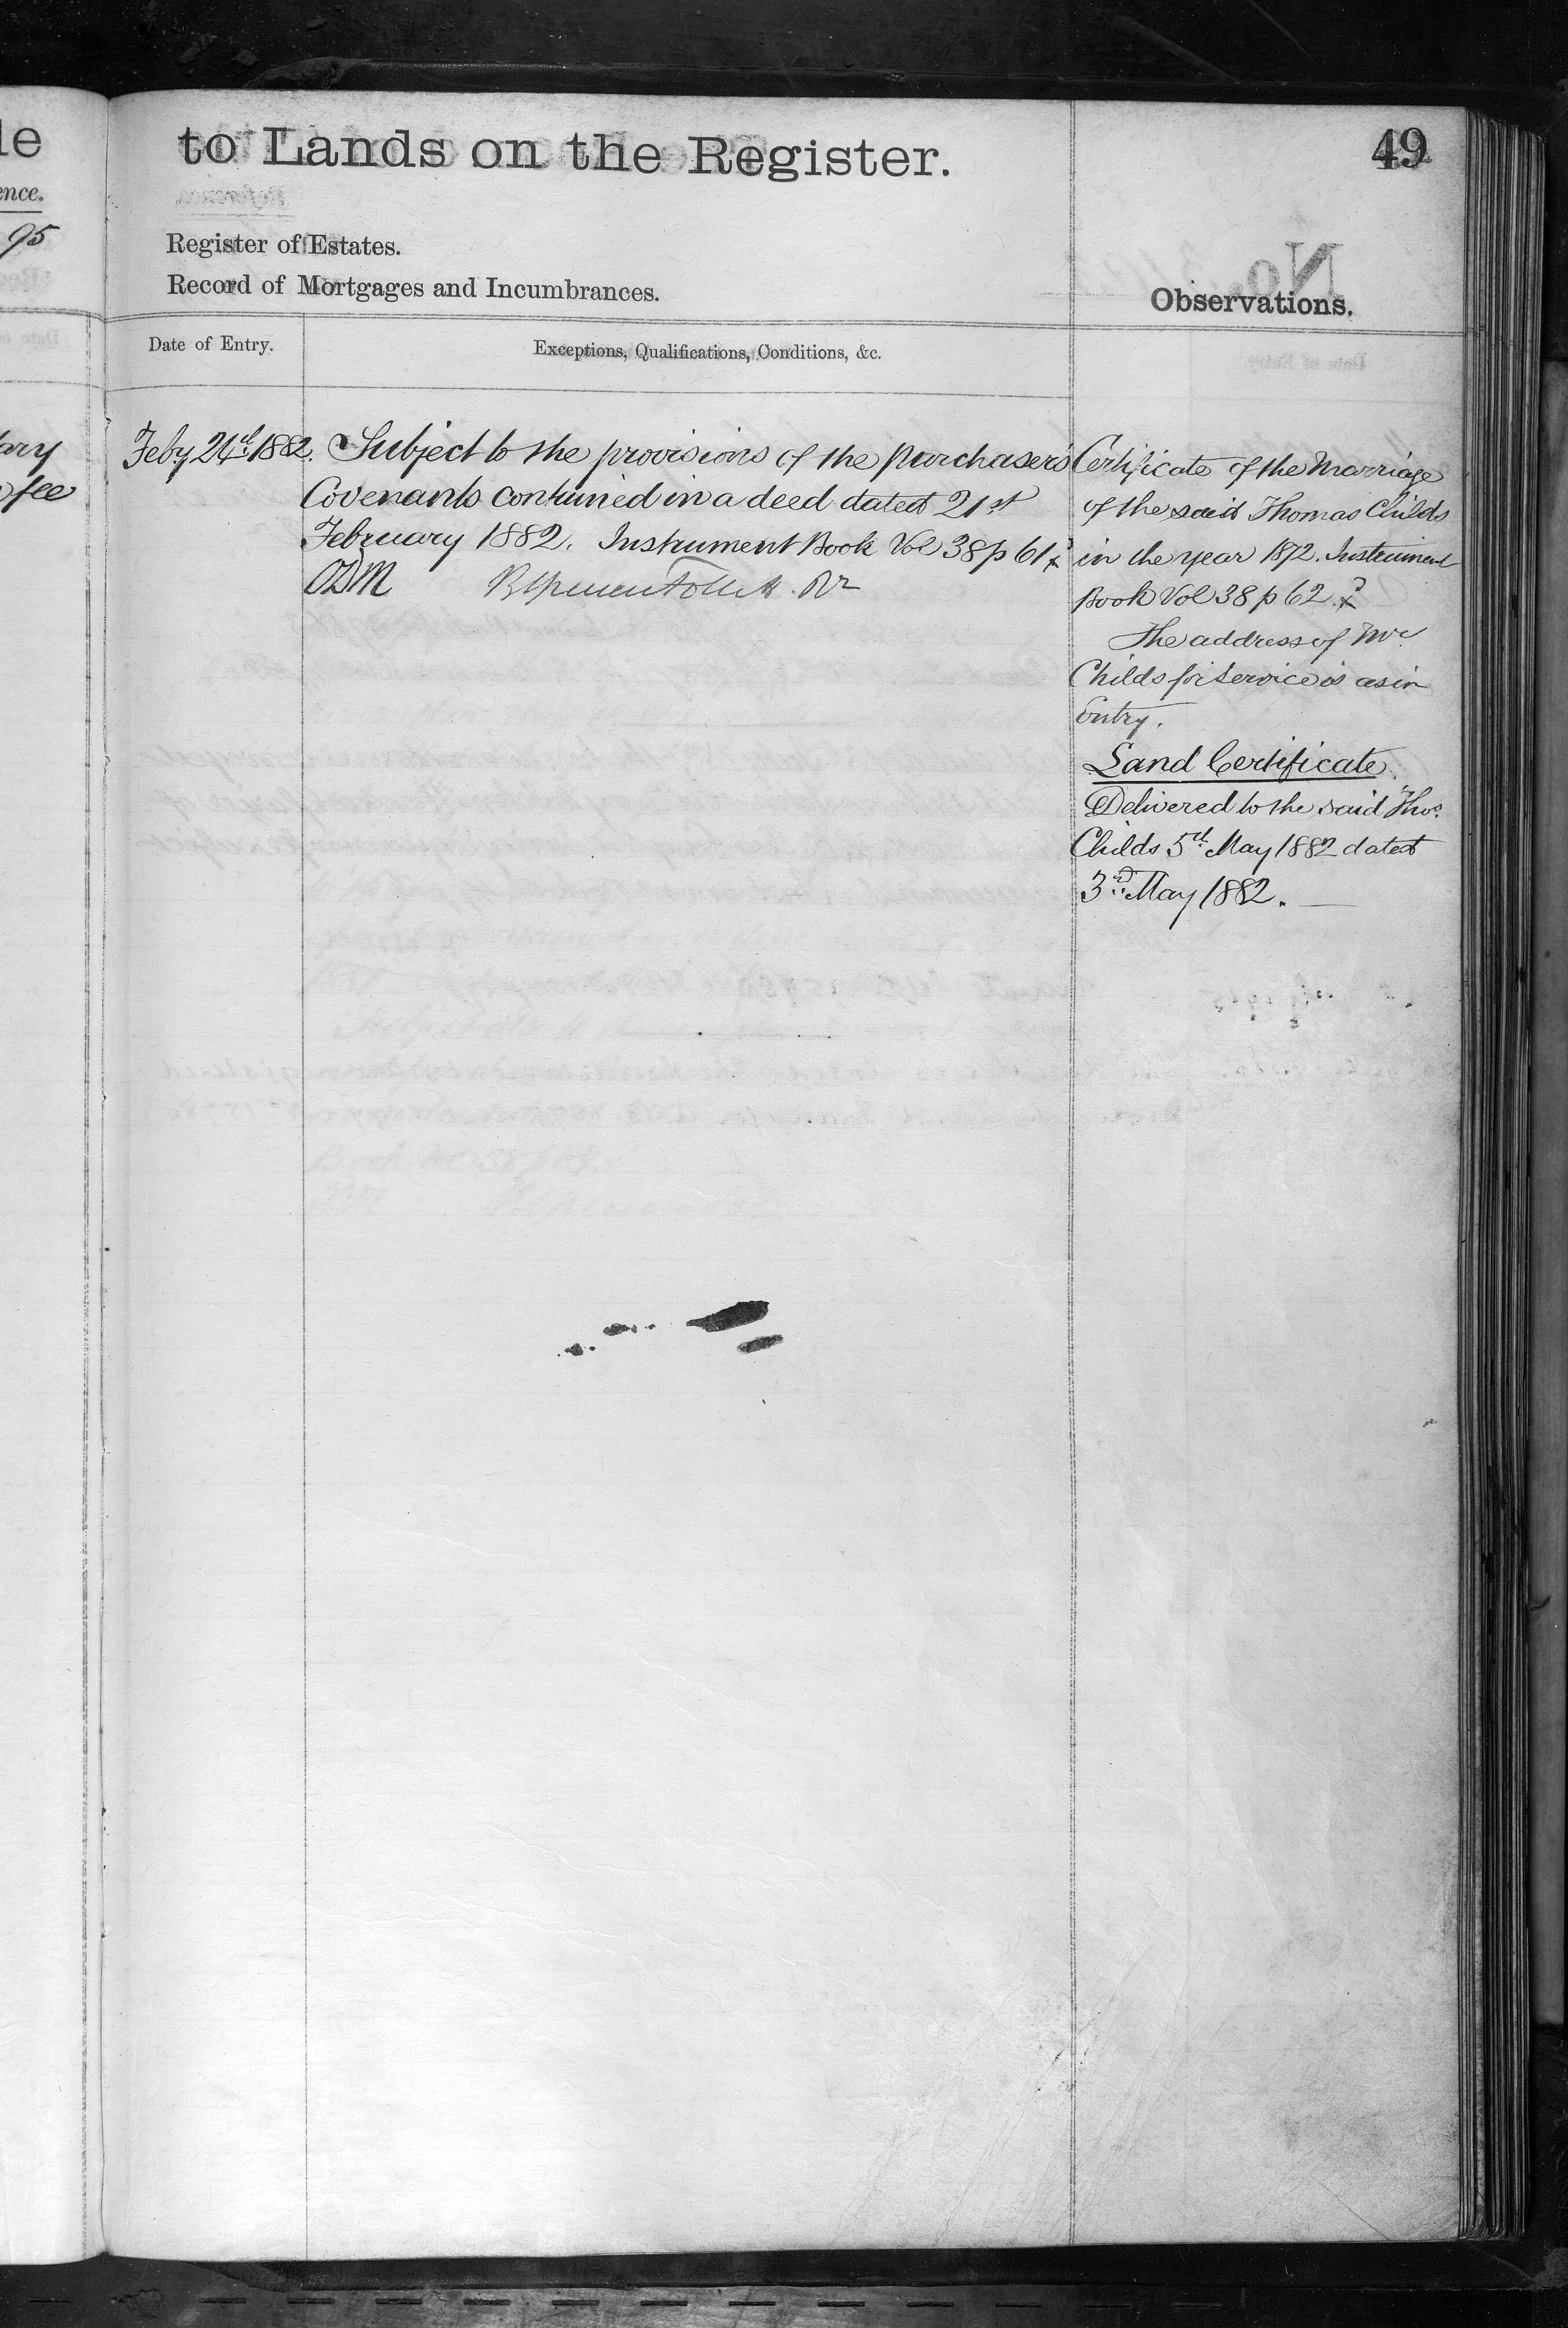 le
ence.
95
ary
fee
to Lands on the Register.
49
Register of Estates.
Record of Mortgages and Incumbrances.
Observations.
Date of Entry.
Exceptions, Qualifications, Conditions, &c.
Feby 24th 1882.
Subject to the provisions of the Purchaser's
Covenants contained in a deed dated 21st
February 1882. Instrument Book Vol 38 p 61
ODM
Certificate of the Marriage
of the said Thomas Childs
in the year 1872. Instrument
Book Vol 38 p 62
The address of Mr
Childs for service is as in
Entry.
Land Certificate
Delivered to the said Thos.
Childs 5th May 1882 dated
3rd May 1882.